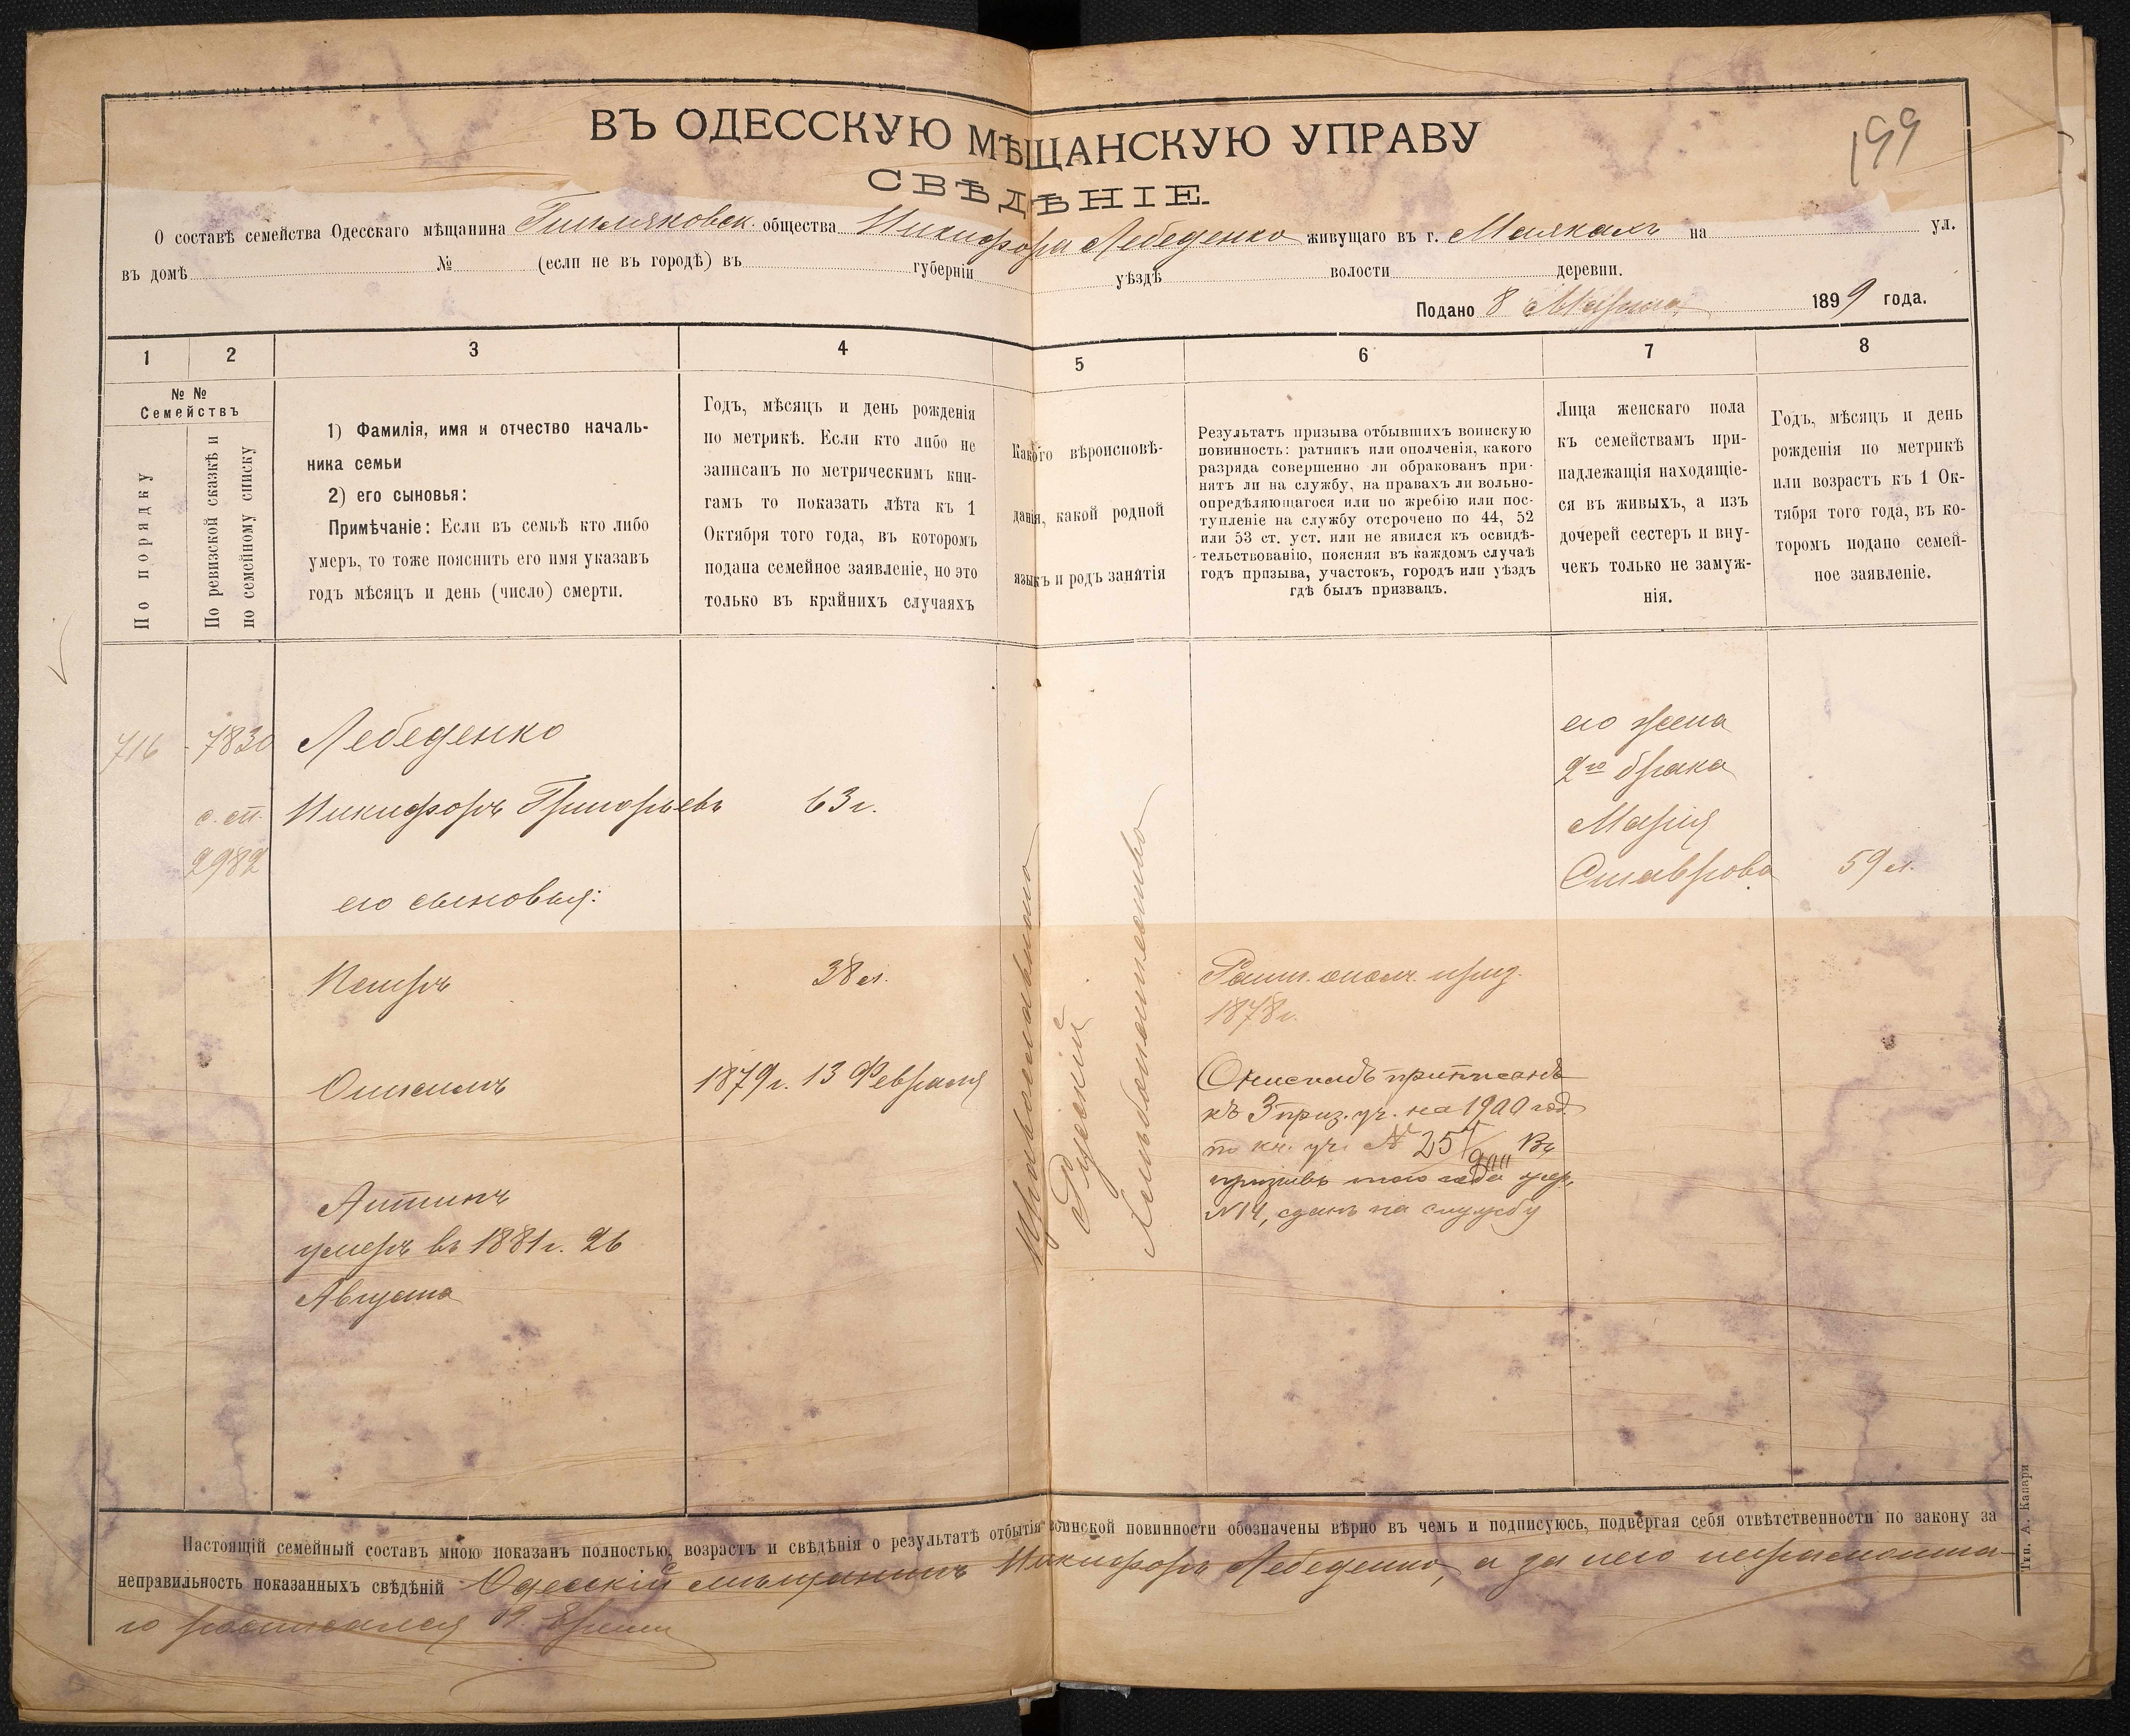 199
ВЪ ОДЕССКУЮ МѢЩАНСКУЮ УПРАВУ
СВѢДѢНІЕ.
О составѣ семейства Одесскаго мѣщанина общества Никифора Лебеденко живущаго въ г. Маякахъ на ул.
въ домѣ № (если не въ городѣ) въ губерніи уѣздѣ волости деревни.
Подано 8 Марта 1899 года.
1 2 3 4 5 6 7 8
№ №
Семействъ
По порядку
По ревизской сказкѣ и
по семейному списку
1) Фамилія, имя и отчество началь-
ника семьи
2) его сыновья:
Примѣчаніе: Если въ семьѣ кто либо
умеръ, то тоже пояснить его имя указавъ
годъ мѣсяцъ и день (число) смерти.
Годъ, мѣсяцъ и день рожденія
по метрикѣ. Если кто либо не
записанъ по метрическимъ кни-
гамъ то показать лѣта къ 1
Октября того года, въ которомъ
подана семейное заявленіе, но это
только въ крайнихъ случаяхъ
Какого вѣроисповѣ-
данія, какой родной
языкъ и родъ занятія
Результатъ призыва отбывшихъ воинскую
повинность: ратникъ или ополченія, какого
разряда совершенно ли обракованъ при-
нятъ ли на службу, на правахъ ли вольно-
опредѣляющагося или по жребію или пос-
тупленіе на службу отсрочено по 44, 52
или 53 ст. уст. или не явился къ освидѣ-
тельствованію, поясняя въ каждомъ случаѣ
годъ призыва, участокъ, городъ или уѣздъ
гдѣ былъ призванъ.
Лица женскаго пола
къ семействамъ при-
надлежащія находящіе-
ся въ живыхъ, а изъ
дочерей сестеръ и вну-
чекъ только не замуж-
нія.
Годъ, мѣсяцъ и день
рожденія по метрикѣ
или возрастъ къ 1 Ок-
тября того года, въ ко-
торомъ подано семей-
ное заявленіе.
716 7830 Лебеденко
с. сп. Никифоръ Григорьевъ 63 г.
2982
его сыновья:
Петръ 38 л.
1879 г. 13 Февраля
Антипъ
умеръ въ 1881 г. 26
Августа
Православнаго
Русскій
Хлѣбопашество
Ратн. ополч. приз.
1878 г.
приписанъ
къ 3 приз. уч. на 1900 год
по кн. уч. № 257/900 Въ
призывъ того года жер.
№ 14, сданъ на службу
его жена
2го брака
Марія
Ставрова 59 л.
Настоящій семейный составъ мною показанъ полностью, возрастъ и свѣдѣнія о результатѣ отбытія воинской повинности обозначены вѣрно въ чемъ и подписуюсь, подвергая себя отвѣтственности по закону за
неправильность показанныхъ свѣдѣній Одесскій мѣщанинъ Никифоръ Лебеденко, а за него неграмотна-
го росписался
Тип. А. Капари